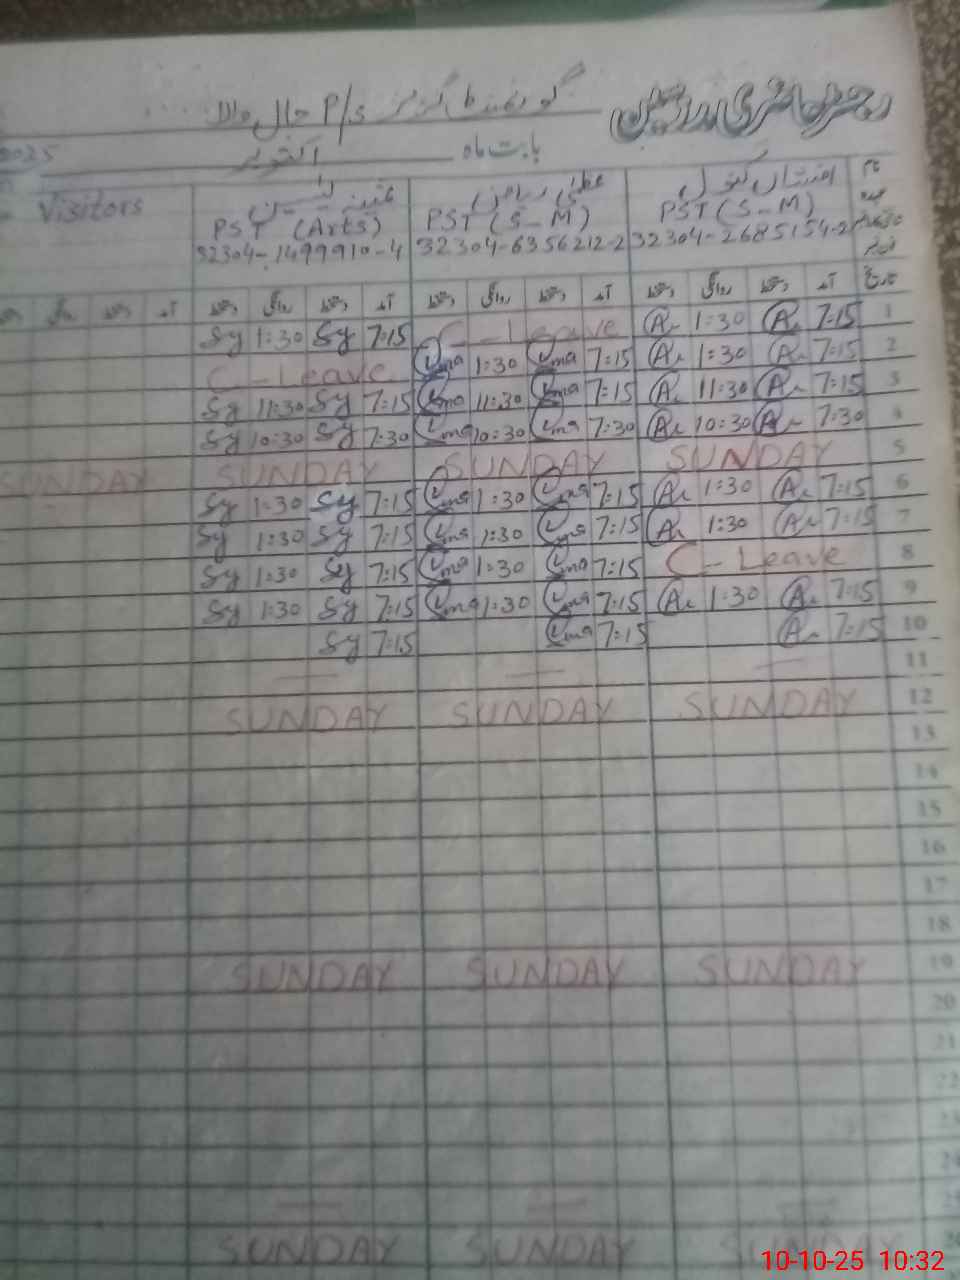 رجسٹر حاضری مدرسین
گورنمنٹ گرلز P/S جال والا
بابت ماہ اکتوبر 2025
نام افشاں کنول عظمیٰ Visitors
عہدہ PST (S-M) PST (S-M) PST (Arts)
32304-2685154-2 32304-6356212-2 32304-1499910-4
تاریخ آمد دستخط روانگی دستخط آمد دستخط روانگی دستخط آمد دستخط روانگی دستخط آمد دستخط روانگی
1 7:15 A 1:30 A C-Leave 7:15 Sy 1:30 Sy
2 7:15 A 1:30 A 7:15 Uma 1:30 Uma C-Leave
3 7:15 A 11:30 A 7:15 Uma 11:30 Uma 7:15 Sy 11:30 Sy
4 7:30 A 10:30 A 7:30 Uma 10:30 Uma 7:30 Sy 10:30 Sy
5 SUNDAY SUNDAY SUNDAY SUNDAY
6 7:15 A 1:30 A 7:15 Uma 1:30 Uma 7:15 Sy 1:30 Sy
7 7:15 A 1:30 A 7:15 Uma 1:30 Uma 7:15 Sy 1:30 Sy
8 C-Leave 7:15 Uma 1:30 Uma 7:15 Sy 1:30 Sy
9 7:15 A 1:30 A 7:15 Uma 1:30 Uma 7:15 Sy 1:30 Sy
10 7:15 A 7:15 Uma 7:15 Sy
11
12 SUNDAY SUNDAY SUNDAY
13
14
15
16
17
18
19 SUNDAY SUNDAY SUNDAY
20
21
22
23
24
25
26 SUNDAY SUNDAY SUNDAY
10-10-25 10:32